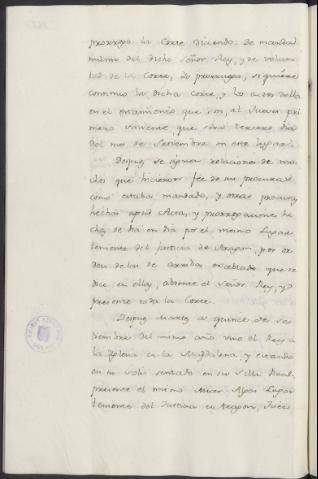 prorrogo la Corte diciendo: de manda-
miento del dicho Señor Rey, y de volun-
tad de la Corte, yo prorrogo, é quiero
continuo la dicha Corte, y los actos della
en el estamiento que son, al Jueves pri-
mero viniente, que será tercero dia
del mes de Setiembre en este lugar.
Despues se siguen relaciones de
que hicieron fee de su procura
como estaba mandado, y otras
hechas apud Acta, y prorrogaciones he-
chas de dia en dia por el mismo Lugar-
teniente del Justicia de Aragon, por or-
den de los de arriba que se
dice en ellas, absente el Señor Rey, y
presente toda la Corte.
Despues Martes á quince de Se-
tiembre del mismo año, vino el Rey a
la Iglesia de la Magdalena, y estando
en su solio sentado en su Silla Real,
presente el mismo Micer Lugar-
teniente del Justicia de Aragon, Juez